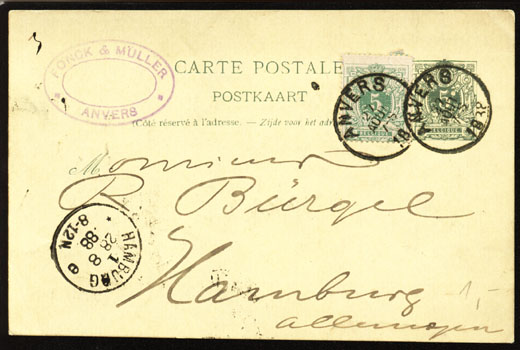 FORCK & MÜLLER
ANVERS
CARTE POSTALE
POSTKAART
(Côté réservé à l'adresse. — Zijde voor het adr
ANVERS
ANVERS
BELGIQUE
BELGIQUE
Monsieur
R. Bürgel
Hamburg
Allemagne
HAMBURG
1
28 8
88
8-12N
1,-